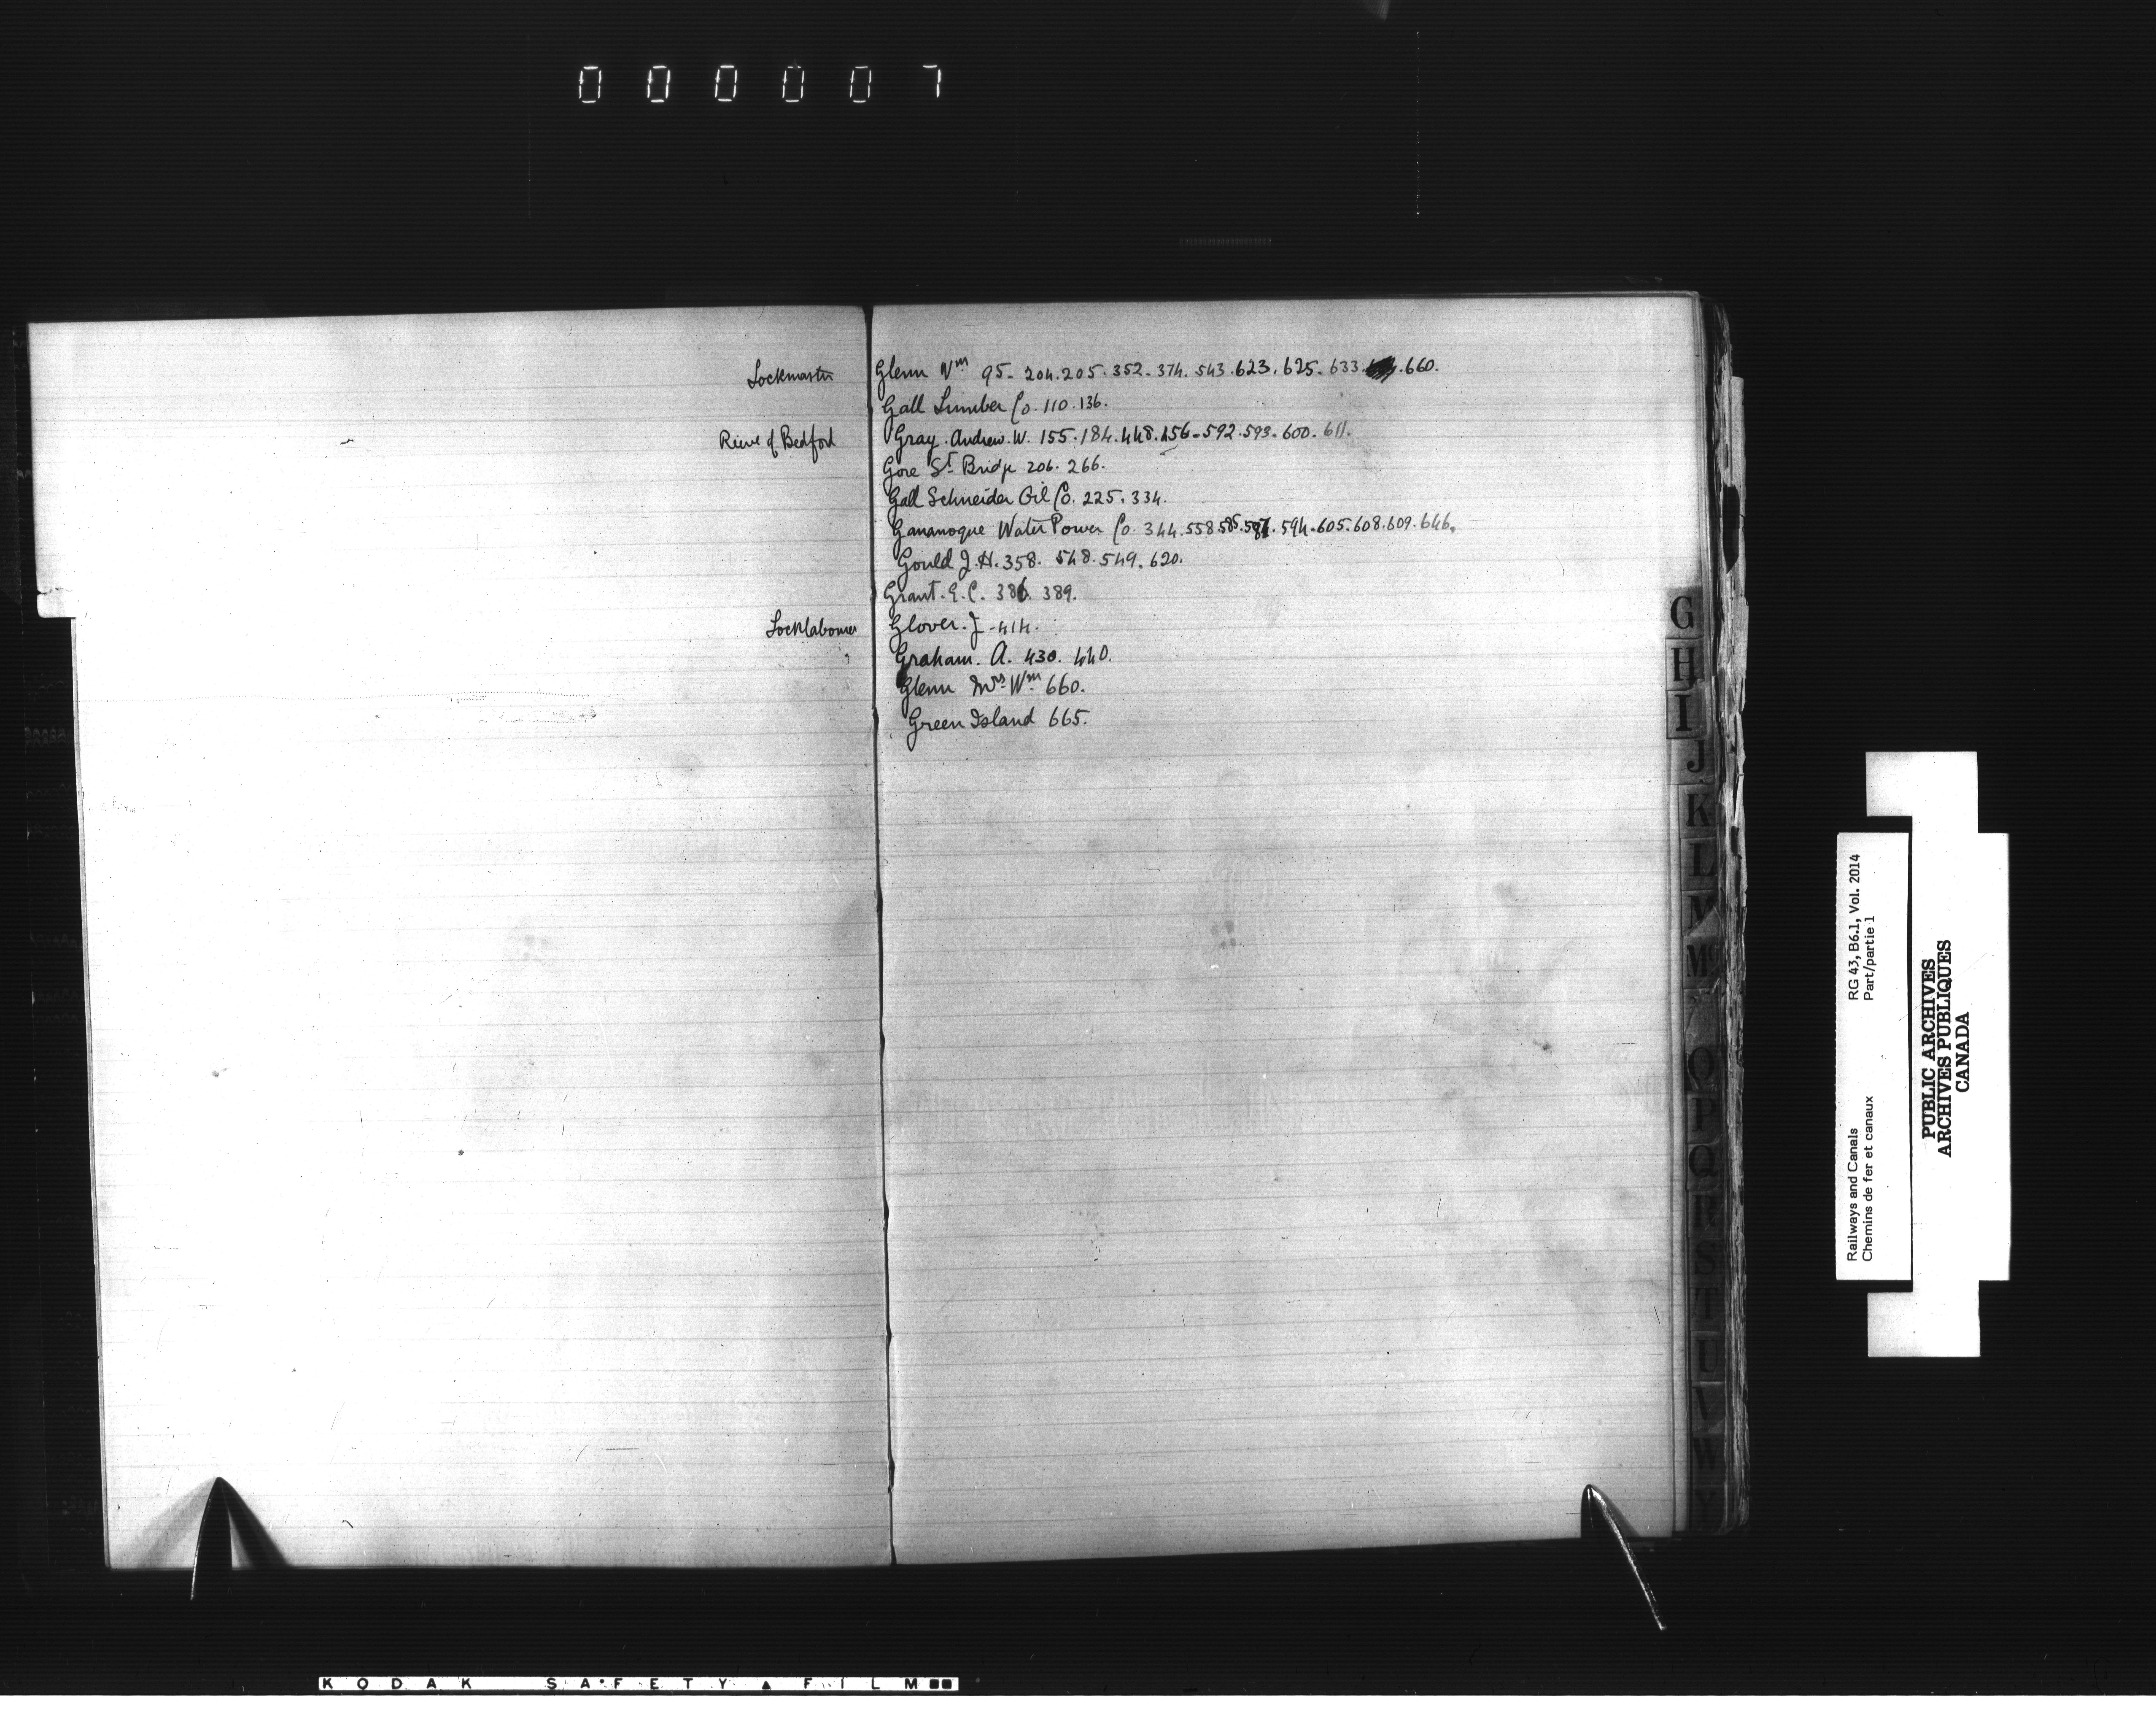 000007
Lockmaster Glenn Wm 95. 204. 205. 352. 374. 543. 623. 625. 633. 660.
Gall Lumber Co. 110. 136.
Reeve of Bedford Gray. Andrew. W. 155. 184. 448. 456. 592. 593. 600. 611.
Gore St. Bridge 206. 266.
Gall Schneider Oil Co. 225. 334.
Gananoque Water Power Co. 344. 558. 585. 587. 594. 605. 608. 609. 646.
Gould J. H. 358. 548. 549. 620.
Grant. E. C. 386. 389.
Locklabourer Glover. J - 414.
Graham. A. 430. 440.
Glenn Mrs. Wm 660.
Green Island 665.
G
H
I
J
K
L
M
Mc
O
P
Q
R
S
T
U
V
W
Y
Railways and Canals RG 43, B6.1, Vol. 2014
Chemins de fer et canaux Part/partie 1
PUBLIC ARCHIVES
ARCHIVES PUBLIQUES
CANADA
KODAK SAFETY FILM